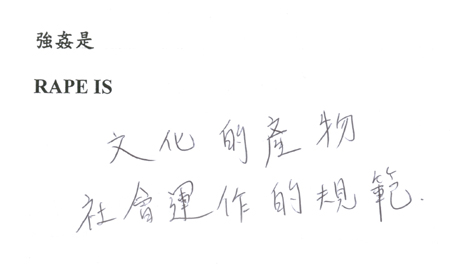 強姦是
RAPE IS
文化的產物
社會運作的規範.